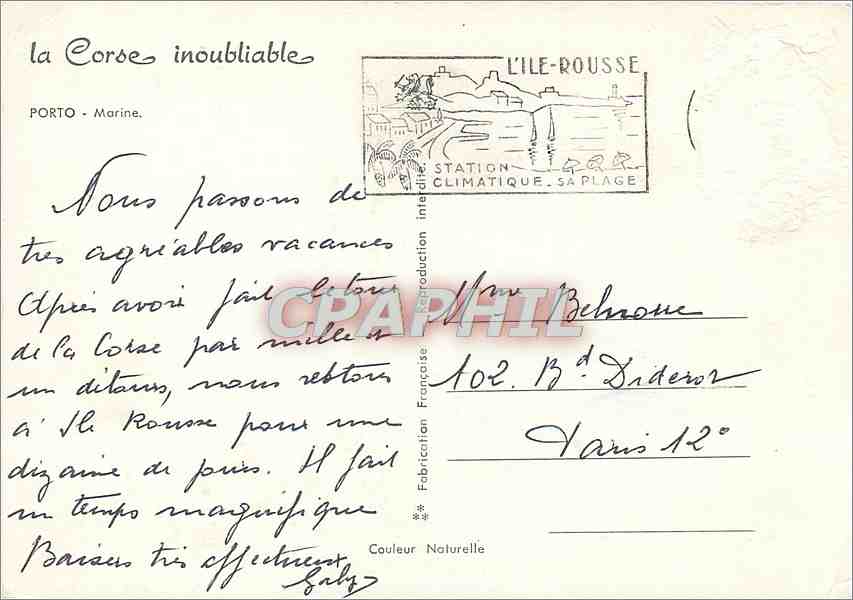 la Corse inoubliable
PORTO - Marine.
L'ILE-ROUSSE
STATION
CLIMATIQUE. SA PLAGE
Nous passons de
très agréables vacances
Après avoir fait le tour
de la Corse par mille et
un détours, nous restons
à Ile Rousse pour une
dizaine de jours. Il fait
un temps magnifique
Baisers très affectueux
Gaby
** Fabrication Française Reproduction interdite.
CPAPHIL
Mme
102. Bd Diderot
Paris 12°
Couleur Naturelle